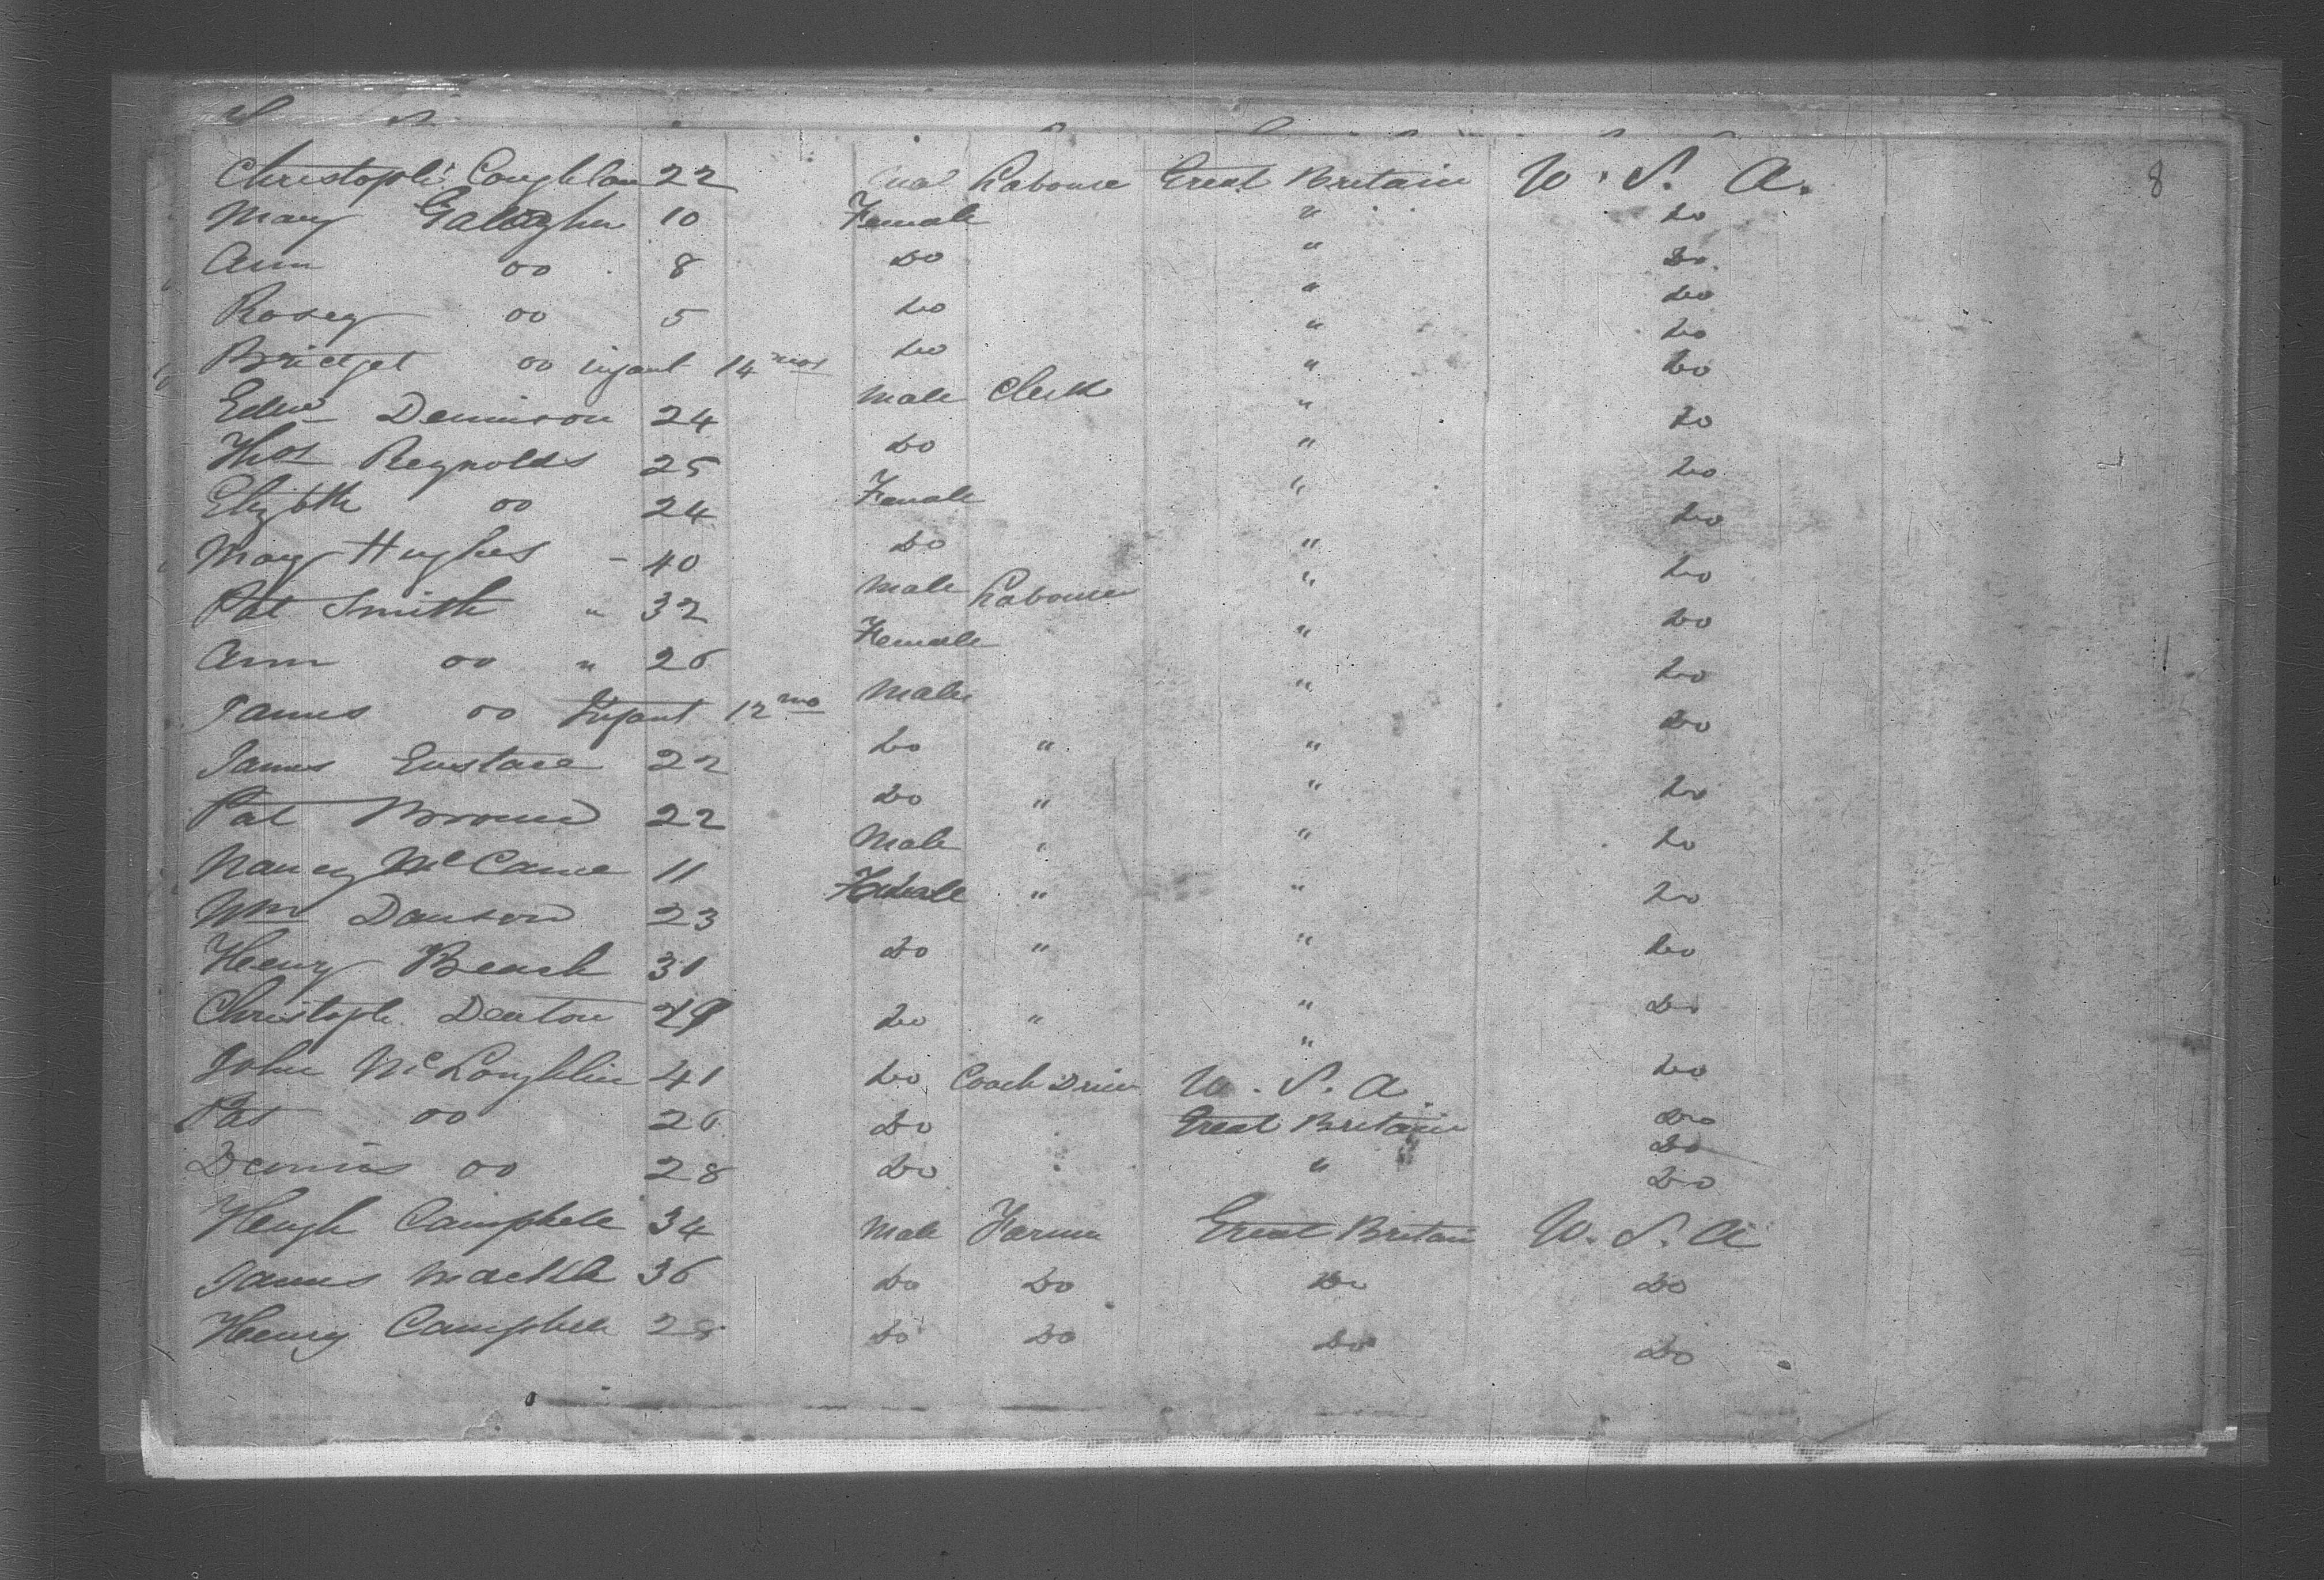 Christoph: Coughlan 22 Male Labourer Great Britain U. S. A. 8
Mary Gallagher 10 Female " Do
Ann Do 8 Do " Do
Rosey Do 5 Do " Do
Bridget Do infant 14 mos Do " Do
Edwd Dennison 24 Male Clerk " Do
Thos Reynolds 25 Do " Do
Elizbth Do 24 Female " Do
Mary Hughes - 40 Do " Do
Pat Smith " 32 Male Labourer " Do
Ann Do " 26 Female " Do
James Do Infant 12 mo Male " Do
James Eustace 22 Do " " Do
Pat Browne 22 Do " " Do
Nancy McCame 11 Male " " Do
Wm Dawson 23 Female " " Do
Henry Beach 31 Do " " Do
Christoph. Denton 49 Do " " Do
John McLoughlin 41 Do Coach Driver U. S. A. Do
Pat Do 26 Do Great Britain Do
Do
Dennis Do 28 Do " Do
Hugh Campbell 34 Male Farmer Great Britain U. S. A
James Mackle 36 Do Do Do Do
Henry Campbell 28 Do Do Do Do